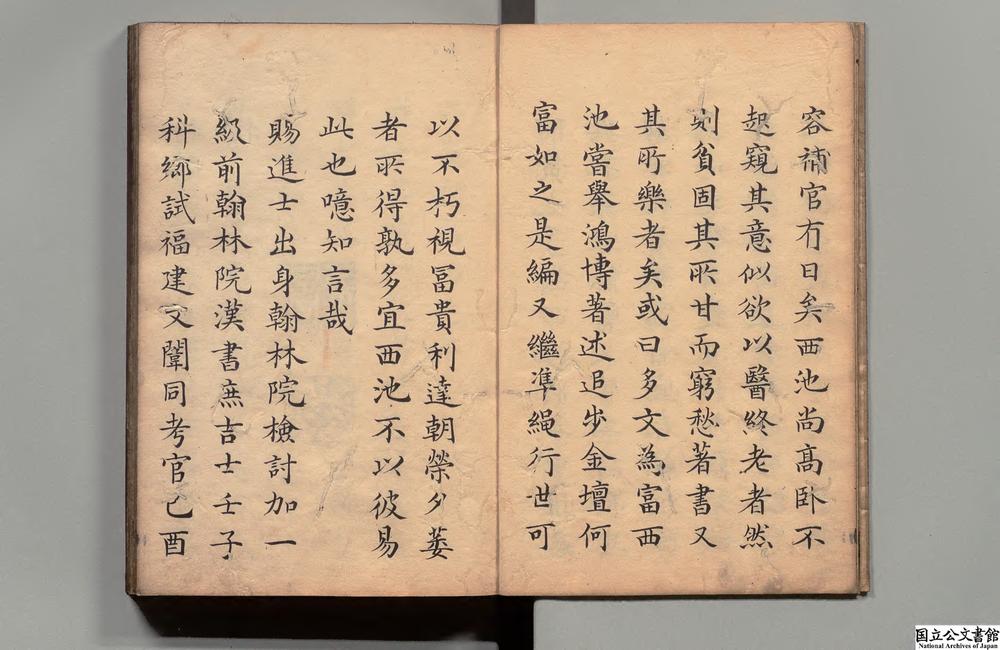 容補官冇日矣西池尚髙卧不
起窺其意似欲以醫終老者然
則貧固其所甘而窮愁著書又
其所樂者矣或曰多文為富西
池嘗舉鴻博著述追步金壇何
富如之是編又繼準繩行世可
以不朽視冨貴利達朝榮夕萎
者所得孰多宜西池不以彼易
此也噫知言哉
賜進士出身翰林院檢討加一
級前翰林院漢書庶吉士壬子
科鄉試福建文闈同考官己酉
国立公文書館
National Archives of Japan